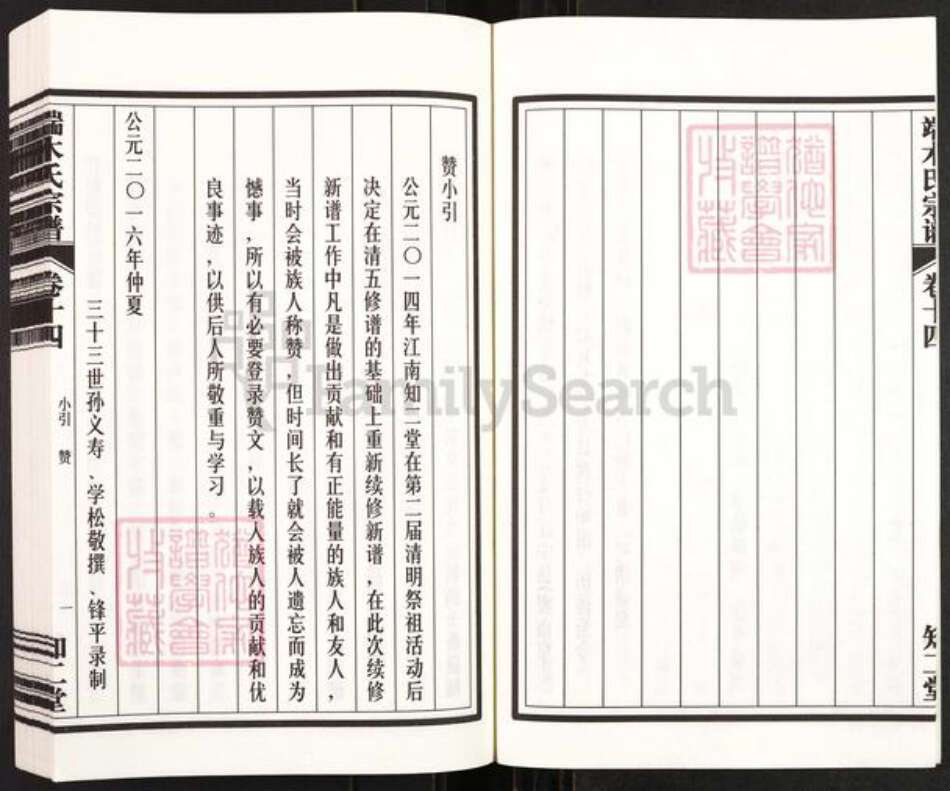 端木氏宗谱
卷十四
知二堂
赞小引
公元二〇一四年江南知二堂在第二届清明祭祖活动后
决定在清五修谱的基础上重新续修新谱,在此次续修
新谱工作中凡是做出贡献和有正能量的族人和友人,
当时会被族人称赞,但时间长了就会被人遗忘而成为
憾事,所以有必要登录赞文,以载人族人的贡献和优
良事迹,以供后人所敬重与学习。
公元二〇一六年仲夏
三十三世孙义寿、学松敬撰、锋平录制
端木氏宗谱
卷十四
小引 赞
一
知二堂
FamilySearch